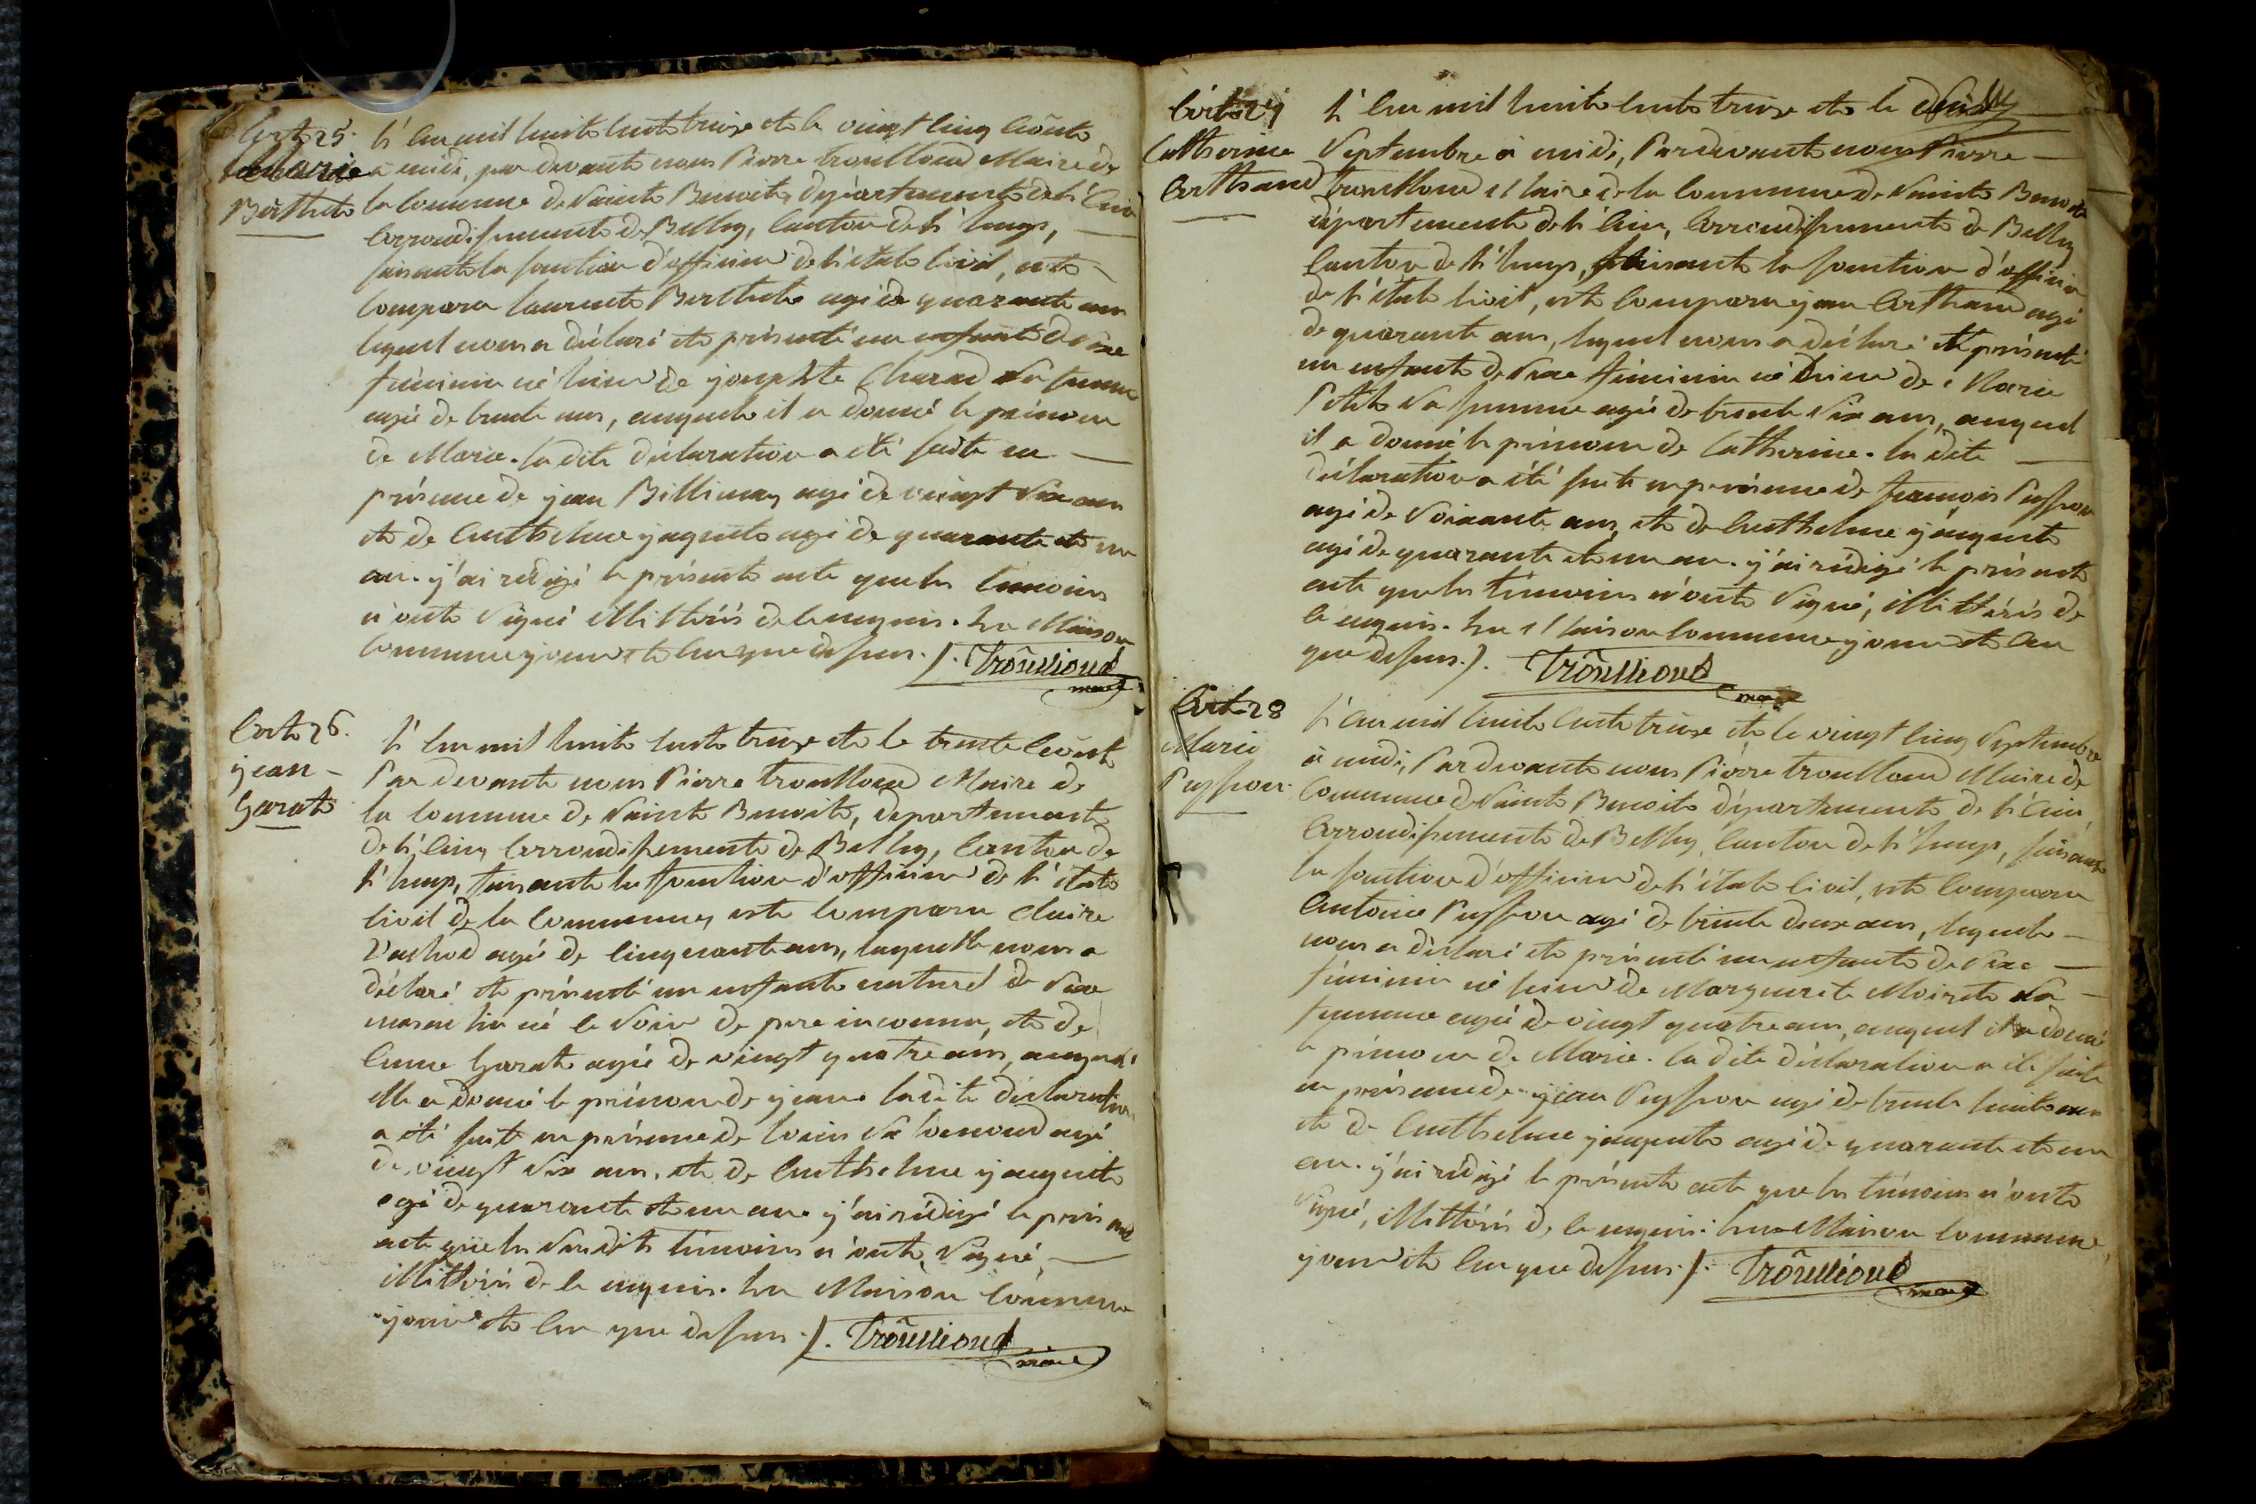 Acte 25.
Marie
Berthet
L'an mil huit cent treize et le vingt cinq Août
à midi, par devant nous Pierre Trouilloud Maire de
la Commune de Saint Benoit, département de l'Ain
Arrondissement de Belley, Canton de l'huys,
faisant la fonction d'officier de l'état Civil, est
Comparu laurent Berthet agé de quarante ans
lequel nous a déclaré et présenté un enfant de sexe
féminin né hier de josephte Charad sa femme
agée de trente ans, auquel il a donné le prénom
de Marie. la dite déclaration a été faite en
présence de jean Billiemaz agé de vingt six ans
et de Anthelme jaquet agé de quarante et un
an. j'ai rédigé le présent acte que les témoins
n'ont signé Illittérés de ce enquis. En Maison
Commune jour et an que dessus. /. Trouillioud
maire
Acte 26.
jean
Garat
L'An mil huit cent treize et le trente Août
Par devant nous Pierre Trouilloud Maire de
la Commune de Saint Benoit, département
de l'Ain, Arrondissement de Belley, Canton de
l'huys, faisant la fonction d'officier de l'état
Civil de la Commune, est Comparu Claire
agée de Cinquante ans, laquelle nous a
déclaré et présenté un enfant naturel de sexe
masculin né ce soir de pere inconnu, et de
Anne Garat agée de vingt quatre ans, auquel
elle a donné le prénom de jean. ladite déclaration
a été faite en présence de louis agé
de vingt six ans, et de Anthelme jaquet
agé de quarante et un an. j'ai rédigé le présent
acte que les susdits témoins n'ont signé,
Illittérés de ce enquis. En Maison Commune
jour et An que dessus. /. Trouillioud
maire
Acte 27
Catherine
Arthaud
L'An mil huit cent treize et le
Septembre à midi, Pardevant nous Pierre
Trouilloud Maire de la Commune de Saint Benoit
département de l'Ain, Arrondissement de Belley
Canton de l'huys, faisant la fonction d'officier
de l'état Civil, est Comparu jean Arthaud agé
de quarante ans, lequel nous a déclaré et présenté
un enfant de sexe féminin né hier de Marie
Petit sa femme agée de trente six ans, auquel
il a donné le prénom de Catherine. la dite
déclaration a été faite en présence de françois Pusson
agé de soixante ans, et de Anthelme jaquet
agé de quarante et un an. j'ai rédigé le présent
acte que les témoins n'ont signé, Illittérés de
ce enquis. En Maison Commune jour et An
que dessus. /. Trouillioud
maire
Acte 28
Marie
Pusson.
L'An mil huit Cent treize et le vingt Cinq Septembre
à midi, Pardevant nous Pierre Trouilloud Maire de
Commune de Saint Benoit département de l'Ain,
Arrondissement de Belley, Canton de l'huys, faisant
la fonction d'officier de l'état Civil, est Comparu
Antoine Pusson agé de trente deux ans, lequel
nous a déclaré et présenté un enfant de sexe
féminin né hier de Marguerite Moiret sa
femme agée de vingt quatre ans, auquel il a donné
le prénom de Marie. la dite déclaration a été faite
en présence de jean Pusson agé de trente huit ans
et de Anthelme jaquet agé de quarante et un
an. j'ai rédigé le présent acte que les témoins n'ont
signé, Illittérés de ce enquis. En Maison Commune,
jour et An que dessus. /. Trouillioud
maire